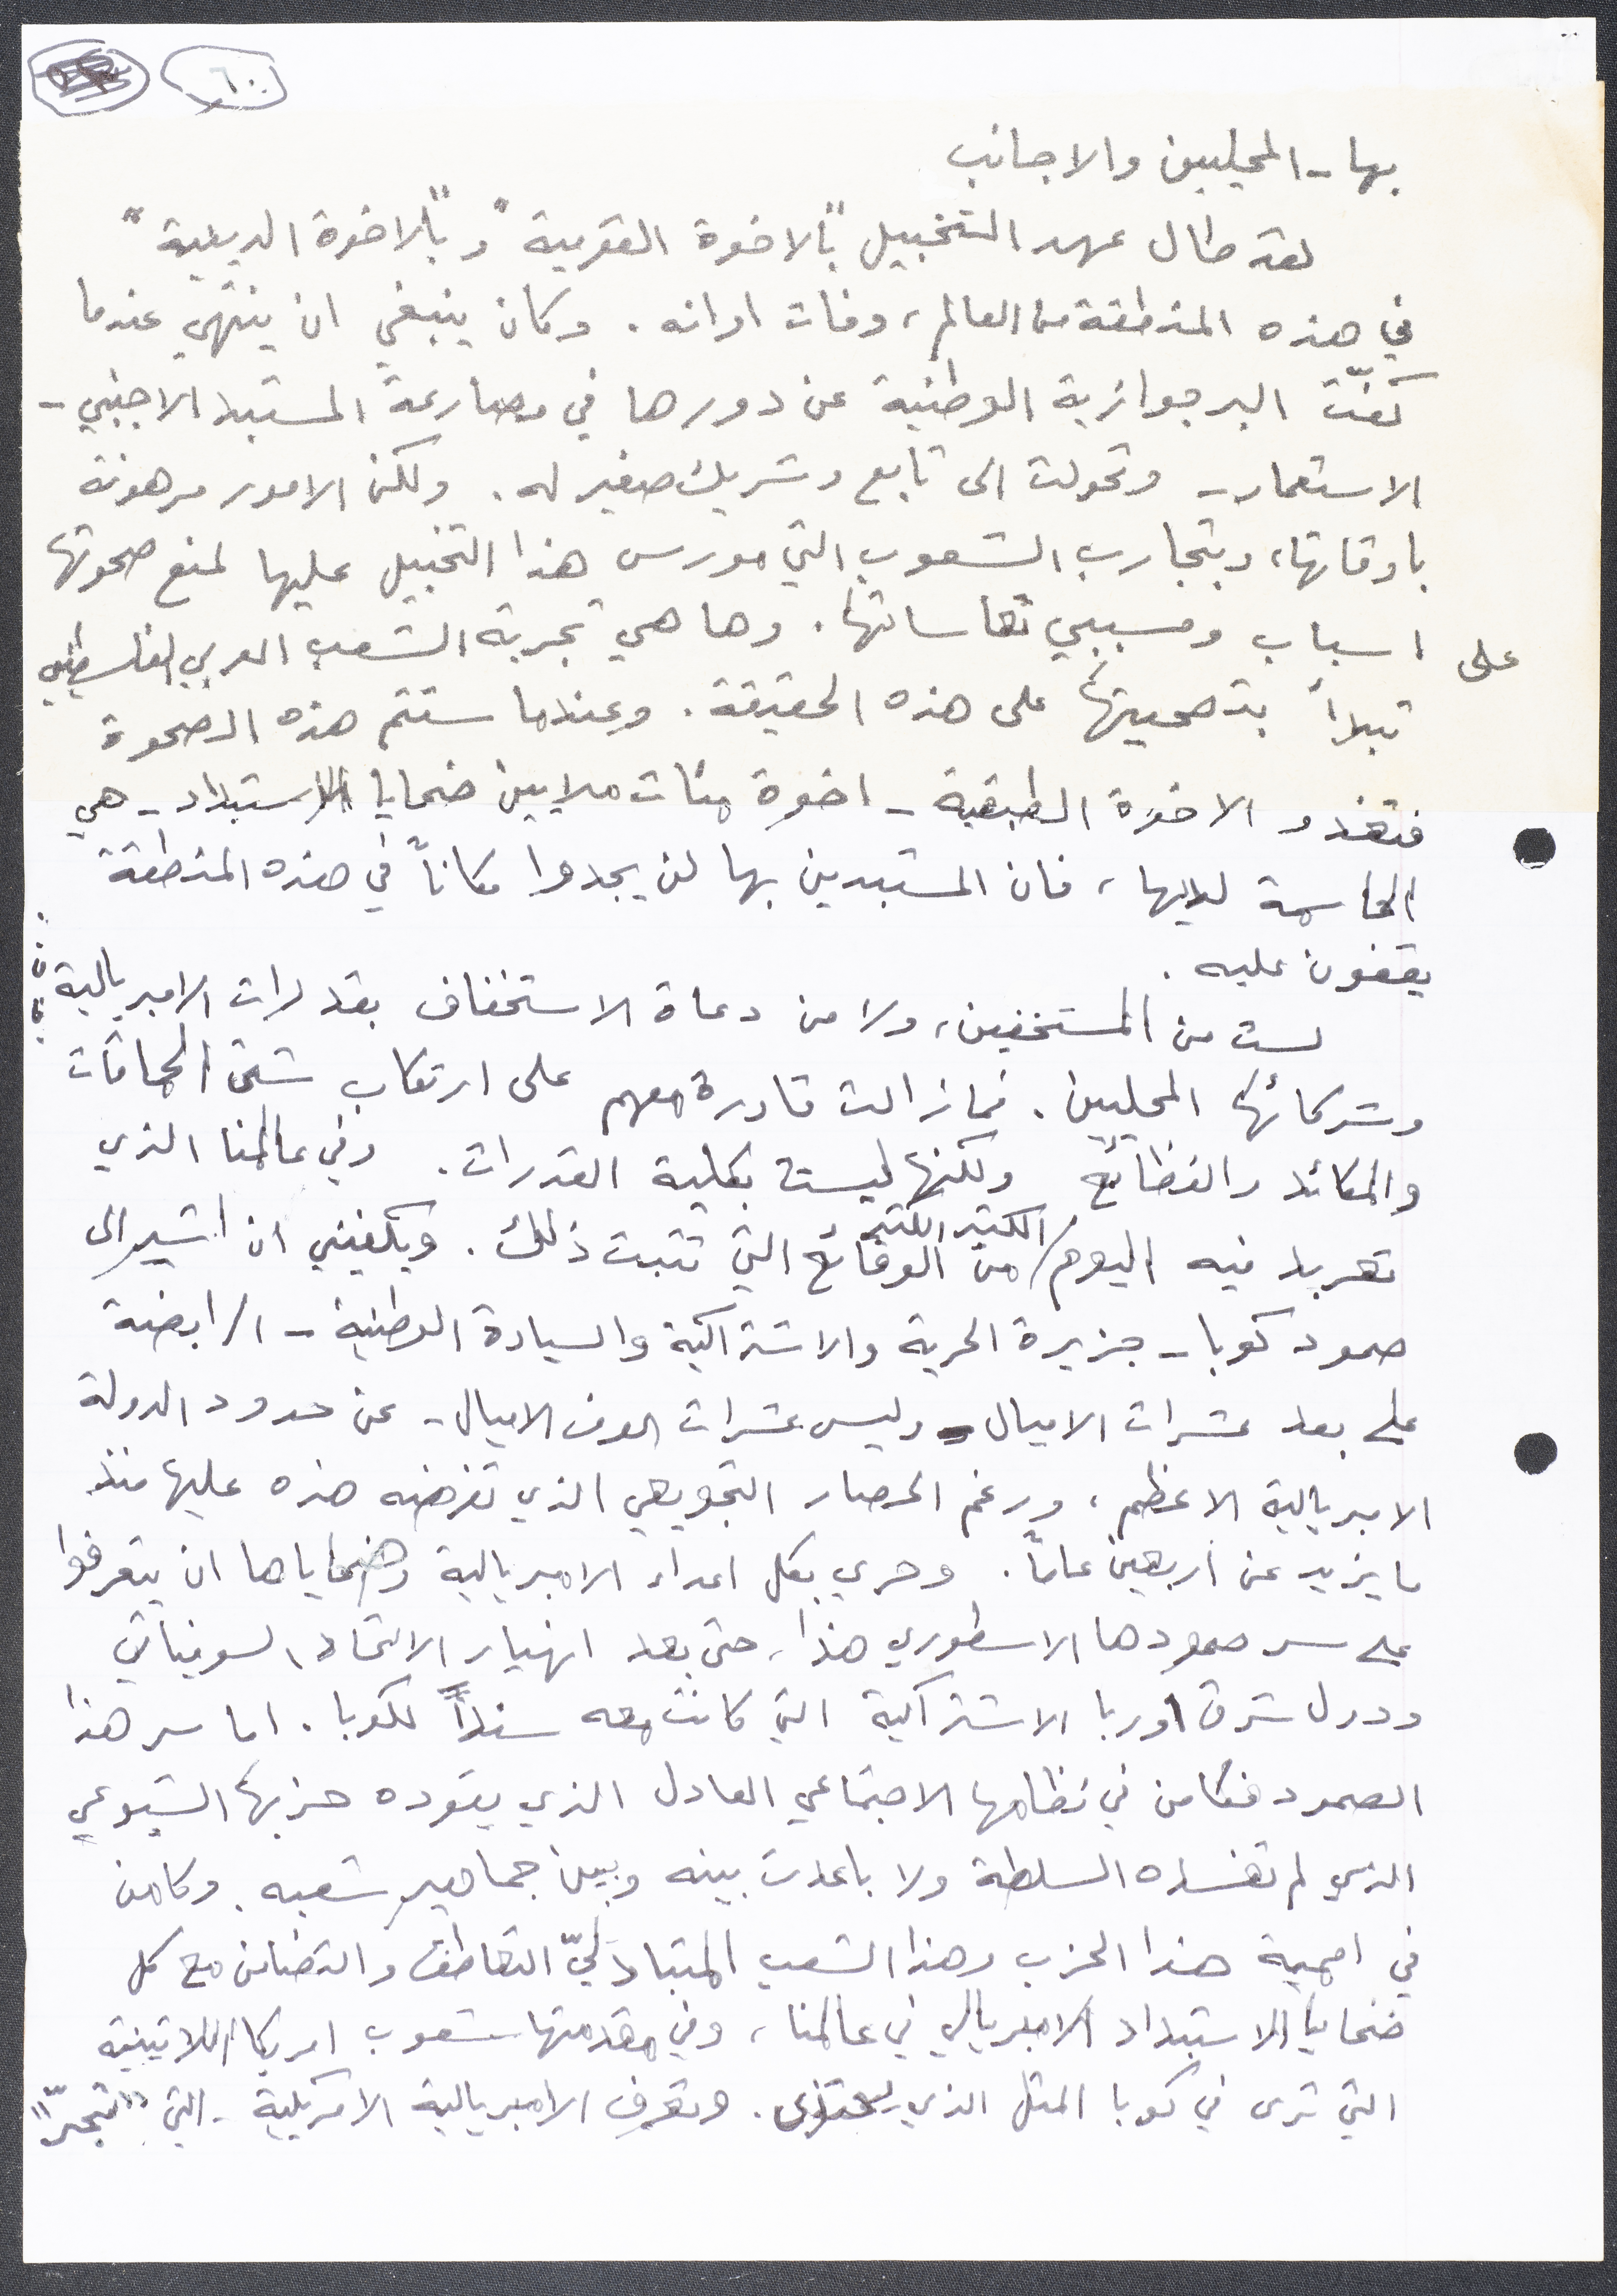 ٦٠
بها - المحليين والاجانب
لقد طال عهد التخبيل "بالاخوة القومية" و"بالاخوة الدينية"
في هذه المنطقة من العالم، وفات اوانه. وكان ينبغي ان ينتهي عندما
كفّت البرجوازية الوطنية عن دورها في مصارعة المستبد الاجنبي -
الاستعمار - وتحولت الى تابع وشريك صغير له. ولكن الامور مرهونة
باوقاتها، وبتجارب الشعوب التي مورس هذا التخبيل عليها لمنع صحوتها
على اسباب ومسببي تعاساتها. وها هي تجربة الشعب العربي الفلسطيني
تبدأ بتصحيتها على هذه الحقيقة. وعندما ستتم هذه الصحوة
فتغدو الاخوة الطبقية - اخوة مئات ملايين ضحايا الاستبداد - هي
الحاسمة لديها، فان المستبدين بها لن يجدوا مكاناً في هذه المنطقة
يقفون عليه.
لست من المستخفين، ولا من دعاة الاستخفاف بقدرات الامبريالية
وشركائها المحليين. فما زالت قادرة معهم على ارتكاب شتى الحماقات
والمكائد والفظائع ولكنها ليست بكلية القدرات. وفي عالمنا الذي
تعربد فيه اليوم/ الكثير الكثير من الوقائع التي تثبت ذلك. ويكفيني ان اشير الى
صمود كوبا - جزيرة الحرية والاشتراكية والسيادة الوطنية - الرابضة
على بعد عشرات الاميال - وليس عشرات الوف الاميال - عن حدود الدولة
الامبريالية الاعظم، ورغم الحصار التجويعي الذي تفرضه هذه عليها منذ
ما يزيد عن اربعين عاماً. وحري بكل اعداء الامبريالية وضحاياها ان يتعرفوا
على سر صمودها الاسطوري هذا، حتى بعد انهيار الاتحاد السوفياتي
ودول شرق اوربا الاشتراكية التي كانت معه سنداً لكوبا. اما سر هذا
الصمود فكامن في نظامها الاجتماعي العادل الذي يقوده حزبها الشيوعي
الذي لم تفسده السلطة ولا باعدت بينه وبين جماهير شعبه. وكامن
في اممية هذا الحزب وهذا الشعب المتبادليّ التعاطف والتضامن مع كل
ضحايا الاستبداد الامبريالي في عالمنا، وفي مقدمتها شعوب امريكا اللاتينية
التي ترى في كوبا المثل الذي يحتذى. وتعرف الامبريالية الامريكية - التي "تتجبّر"